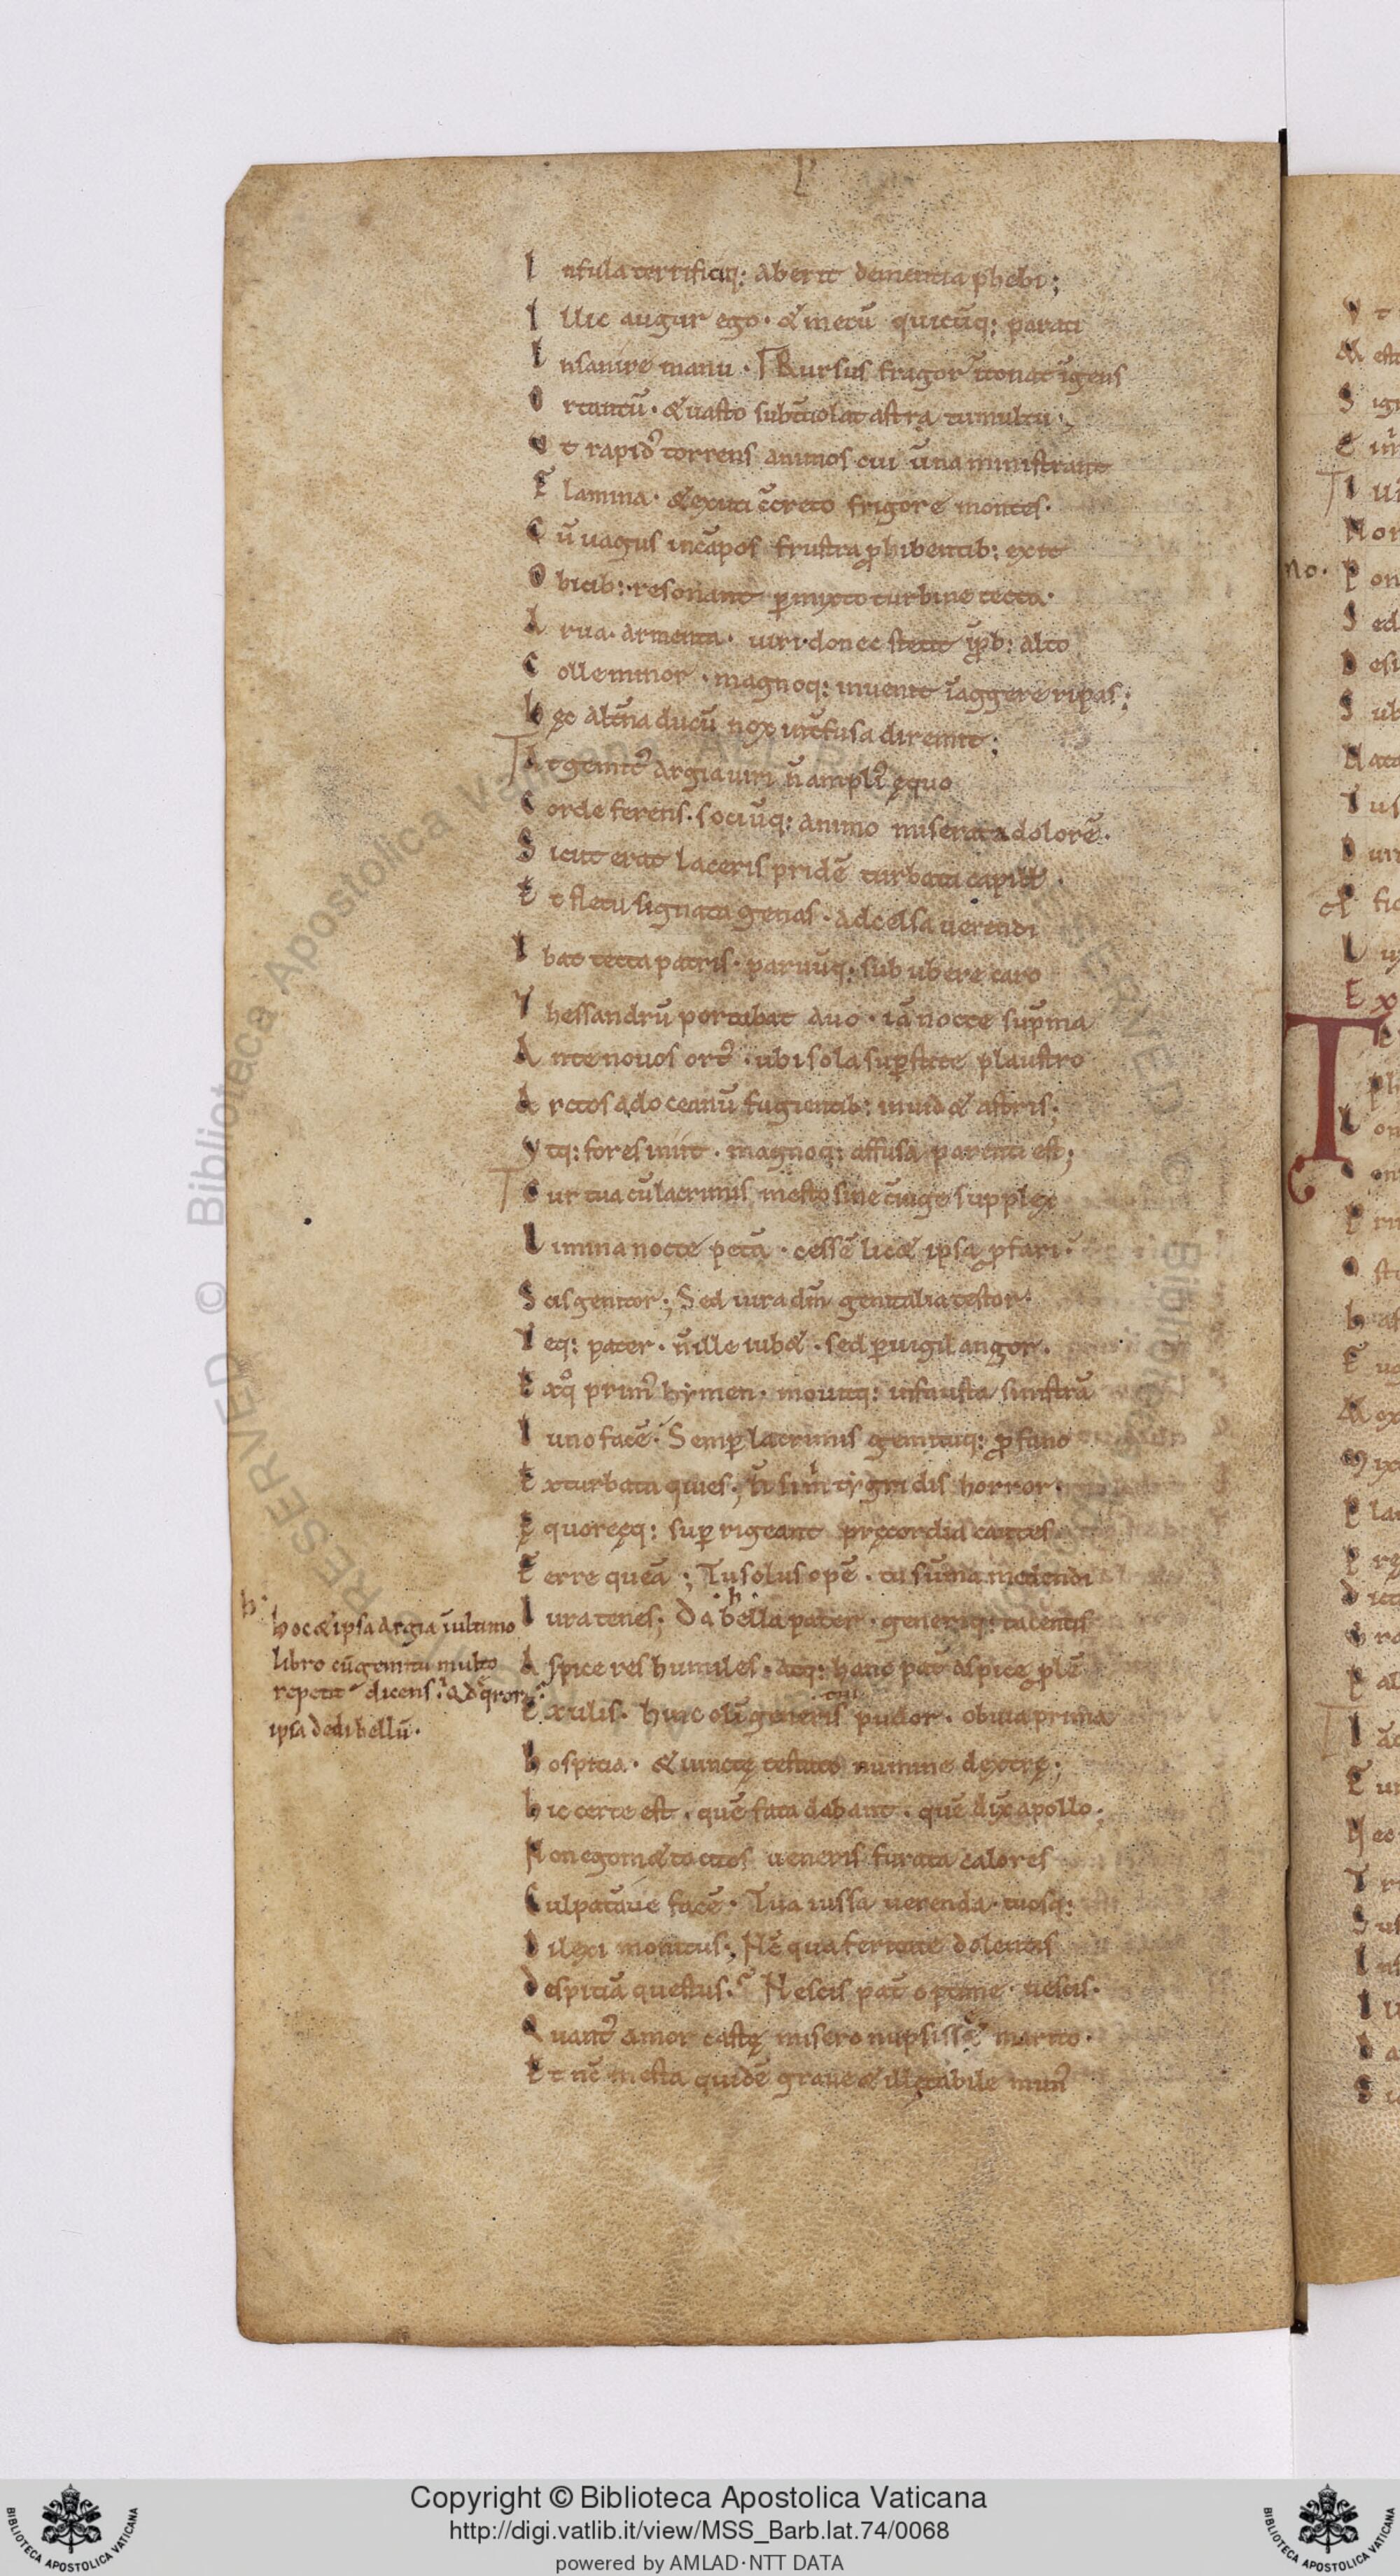 I nsula terrificiq: aberit dementia phebi;
I llic augur ego· & mecū quicūq: parati
I nsanire manu · Rursus fragor ītonat īgens
O rtantū· & uasto subt̄uolat astra tumultu·
U t rapid᾽ torrens animos cui ūna ministrant
F lamina· & exuti c̄creto frigore montes·
C ū uagus incāpos frustra ꝓhibentib: exit
O bicib:· resonant ꝑmixto turbine tecta·
A rua· armenta· uiri· donec stetit īꝓb: alto
C olle minor · magnoq: inuenit īaggere ripas;
h ęc alt̄na ducū nox int̄fusa diremit;
A t gemit᾽ argia uiri n̄ ampli᾽ ęquo
C orde ferens· sociūq: animo miserata dolorē·
S icut erat laceris pridē turbata capill᾽ ·
E t fletu signata genas · ad celsa uerendi
I bat tecta patris· paruūq: sub ubere caro
T hessandrū portabat auo · iā nocte sup̄ma
A nte nouos ort᾽ · ubi sola suꝑstite plaustro
A rctos ad oceanū fugientib: inuid& astris;
V tq: fores iniit · magnoq: affusa parenti est;
C ur tua cū lacrimis mesto sine c̄iuge supplex
L imina nocte petā · cessē lic& ipsa ꝓfari·
S cis genitor; Sed iura dm̄ genitalia testor·
T eq: pater · n̄ ille iub& · sed ꝑuigil angor·
E xq̊ prim᾽ hymen· mouitq: infausta sinistrā
I uno facē· Semꝑ lacrimis gemituq: ꝓfano
E xturbata quies; N̄ si m̄ tygridis horror
Ę quoręęq: suꝑ rigeant pręcordia cautes
F erre queā; Tu solus opē · tu sūma medendi
I ura tenes; Da bella pater · generiq: tacentis
A spice res humiles· atq: hanc pat̄ aspice ꝓlē
E xulis· huic olī generis pudor· obuia prima
tui
h ospitia· & iunctę testato numine dextrę;
h ic certe est · quē fata dabant · quē dix̄ apollo;
N on egom& tacitos ueneris furata calores
C ulpatāue facē· Tua iussa uerenda· tuosq:
D ilexi monitus; Nc̄ qua feritate dolentis
D espiciā questus· Nescis pat̄ optime· nescis·
Q uant᾽ amor castę misero nupsiss& marito·
E t nc̄ mesta quidē graue & illętabile mun᾽
h·
·h·
hoc & ipsa argia īultimo
libro cū gemitu multo
repetit dicens· & qd queror
ipsa dedi bellū·
no·
Copyright © Biblioteca Apostolica Vaticana
http://digi.vatlib.it/view/MSS_Barb.lat.74/0068
powered by AMLAD·NTT DATA
BIBLIOTECA APOSTOLICA VATICANA
BIBLIOTECA APOSTOLICA VATICANA